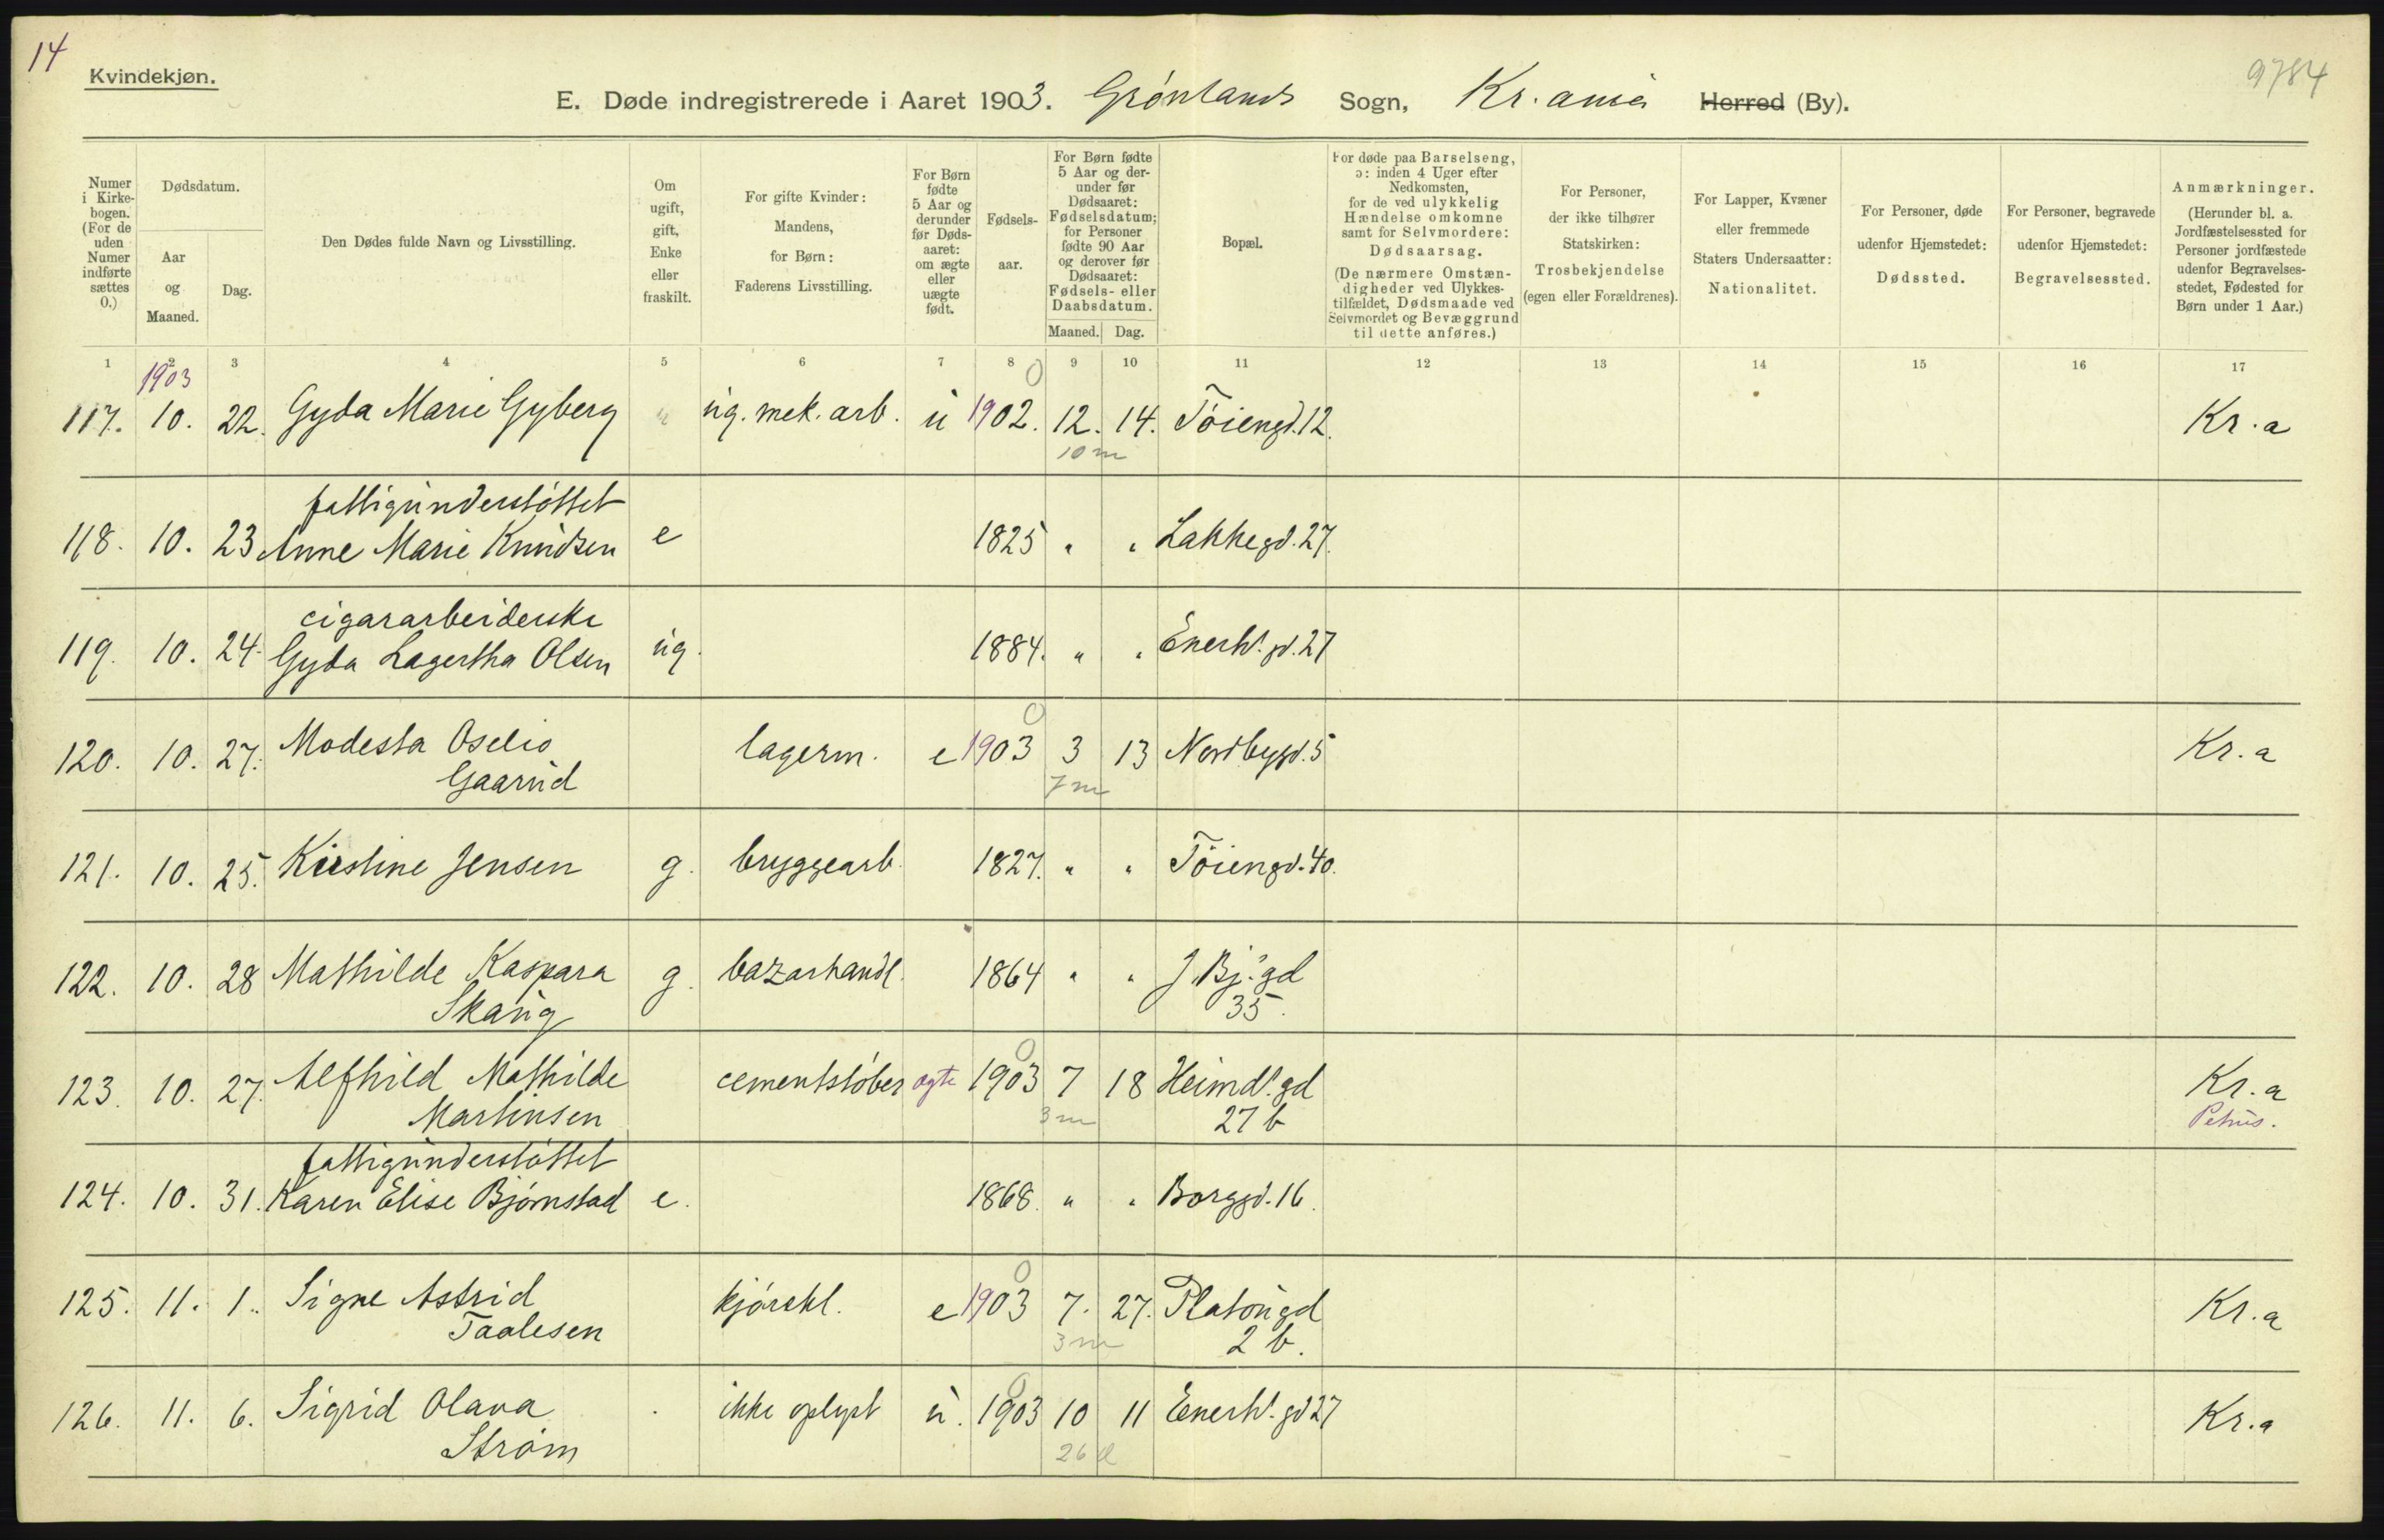 14
Kvindekjøn.
9784
E. Døde indregistrerede i Aaret 1903. Grønlands Sogn, Kr.ania Herred (By).
Numer i Kirkebogen. (For de uden Numer indførte sættes 0.)
Dødsdatum.
Aar og Maaned.
Dag.
Den Dødes fulde Navn og Livsstilling.
Om ugift, gift, Enke eller fraskilt.
For gifte Kvinder: Mandens, for Børn: Faderens Livsstilling.
For Børn fødte 5 Aar og derunder før Dødsaaret: om ægte eller uægte født.
Fødselsaar.
For Børn fødte 5 Aar og derunder før Dødsaaret: Fødselsdatum; for Personer fødte 90 Aar og derover før Dødsaaret: Fødsels- eller Daabsdatum.
Maaned. Dag.
Bopæl.
For døde paa Barselseng, ɔ: inden 4 Uger efter Nedkomsten, for de ved ulykkelig Hændelse omkomne samt for Selvmordere: Dødsaarsag. (De nærmere Omstændigheder ved Ulykkestilfældet, Dødsmaade ved Selvmordet og Bevæggrund til dette anføres.)
For Personer, der ikke tilhører Statskirken: Trosbekjendelse (egen eller Forældrenes).
For Lapper, Kvæner eller fremmede Staters Undersaatter: Nationalitet.
For Personer, døde udenfor Hjemstedet: Dødssted.
For Personer, begravede udenfor Hjemstedet: Begravelsessted.
Anmærkninger. (Herunder bl. a. Jordfæstelsessted for Personer jordfæstede udenfor Begravelsesstedet, Fødested for Børn under 1 Aar.)
1 2 3 4 5 6 7 8 9 10 11 12 13 14 15 16 17
1903
0
117. 10. 22. Gyda Marie Gyberg " ug. mek. arb. u 1902. 12. 14. Tøiengd. 12. Kr.a
10 m
fattigunderstøttet
118. 10. 23 Anne Marie Knudsen e 1825 " " Lakkegd. 27.
cigararbeiderske
119. 10. 24. Gyda Lagertha Olsen ug. 1884. " " Enerh. gd. 27
0
120. 10. 27. Modesta Oselio lagerm. e 1903 3 13 Nordbygd. 5 Kr.a
Gaarud
7 m
121. 10. 25. Kirstine Jensen g. bryggearb. 1827. " " Tøiengd. 40.
122. 10. 28 Mathilde Kaspara g. bazarhandl. 1864 " " J. Bj. gd
Skaug 35.
0
123. 10. 27. Alfhild Mathilde cementstøber ægte 1903 7 18 Heimd. gd Kr.a
Martinsen 3 m 27 b Petrus.
fattigunderstøttet
124. 10. 31. Karen Elise Bjørnstad e. 1868. " " Borggd. 16.
0
125. 11. 1. Signe Astrid kjørekl. e 1903 7. 27. Platougd Kr.a
Taalesen 3 m 2 b.
0
126. 11. 6. Sigrid Olava ikke oplyst u. 1903 10 11 Enerh. gd 27 Kr.a
Strøm 26 d